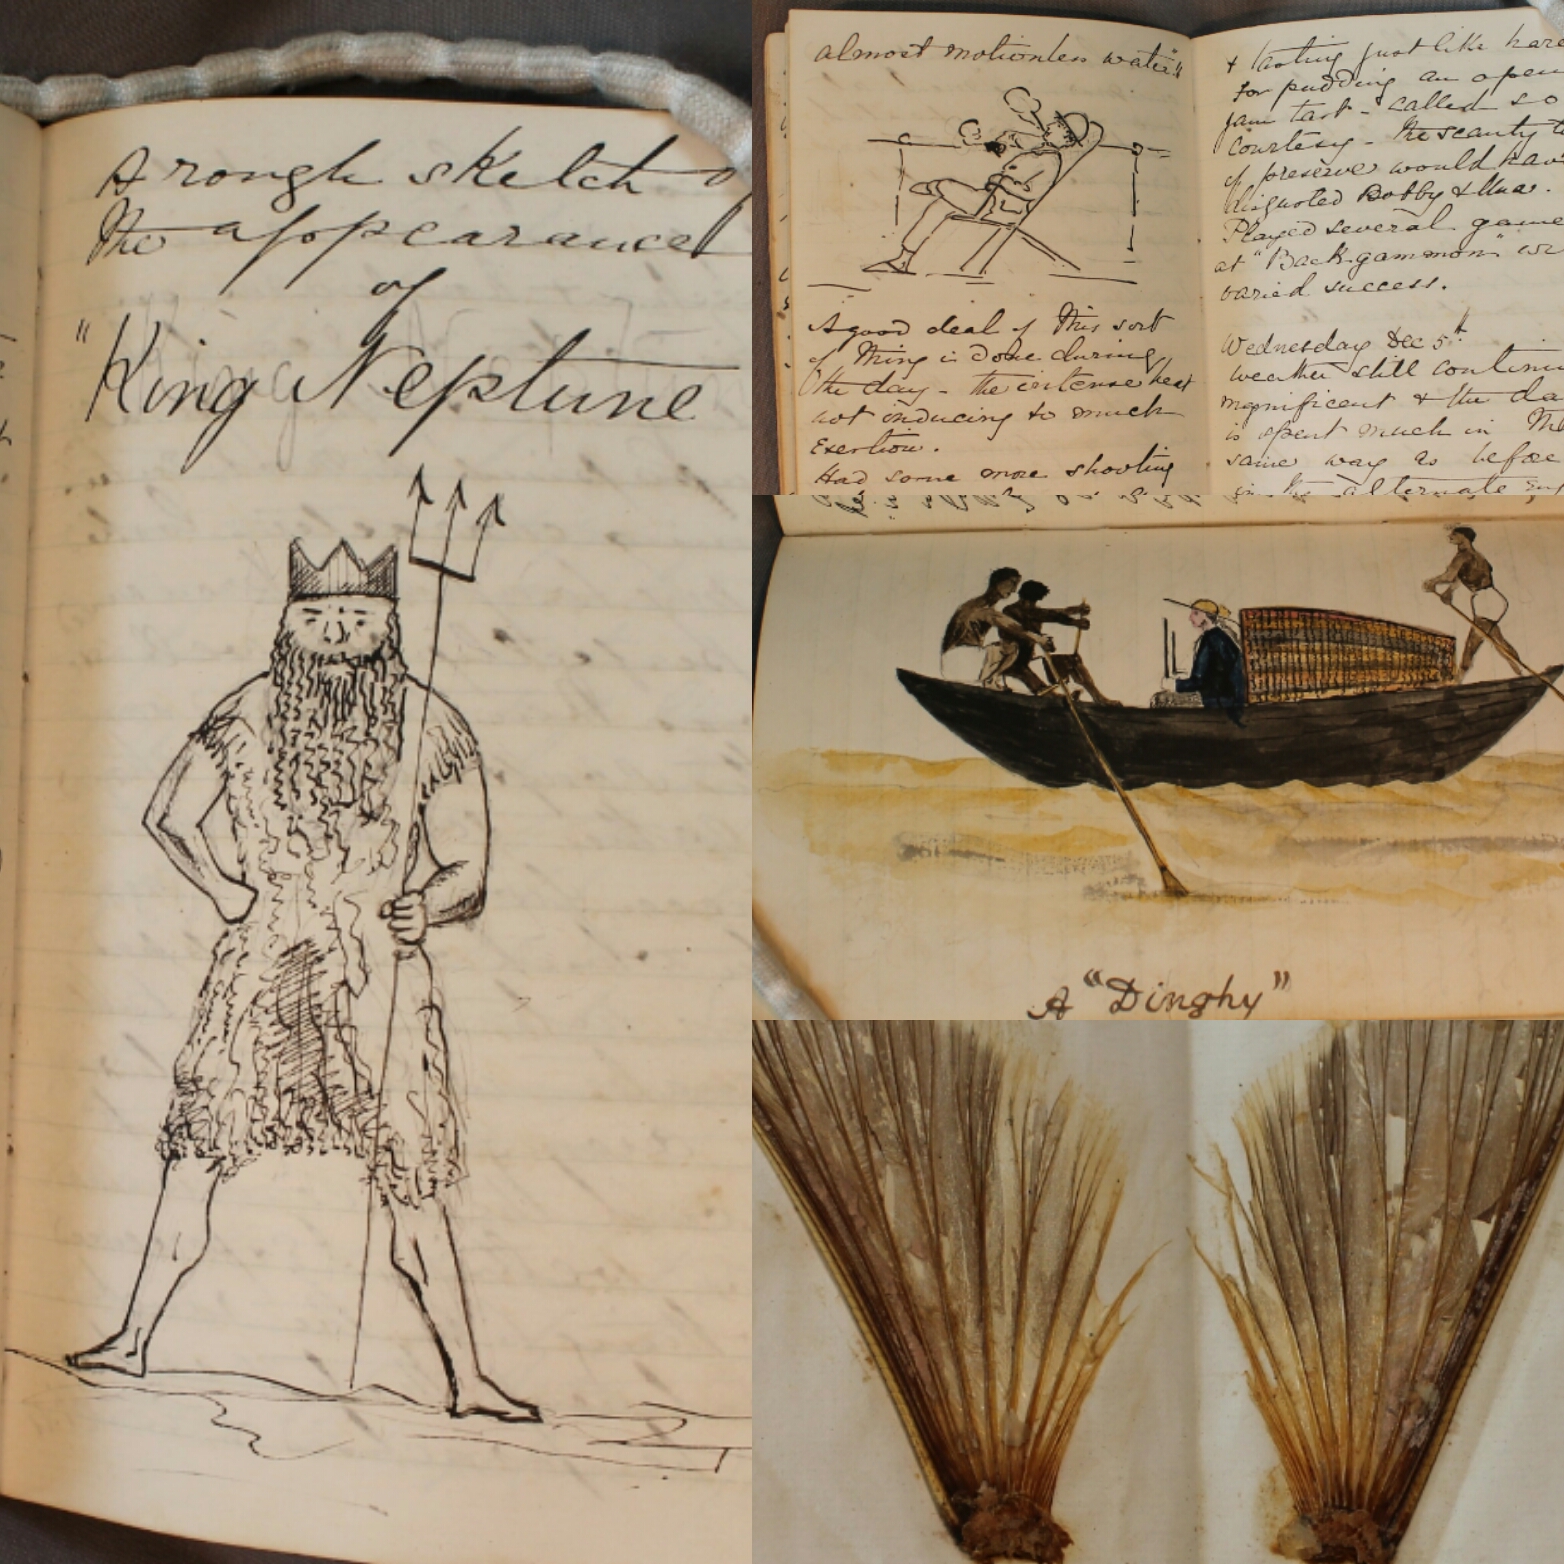 A rough sketch of
the appearance
of
"King Neptune
almost motionless water"
A good deal of this sort
of thing is done during
the day - the intense heat
not inducing to much
exertion.
Had some more shooting
& tasting just like hard
for pudding an open
jam tart - called so
courtesy - the scanty
of preserve would have
disgusted Bobby & Una.
Played several game
at "Backgammon" w
varied success.
Wednesday Dec 5th
weather still continu
magnificent & the da
is spent much in the
same way as before
in the alternate
A "Dinghy"